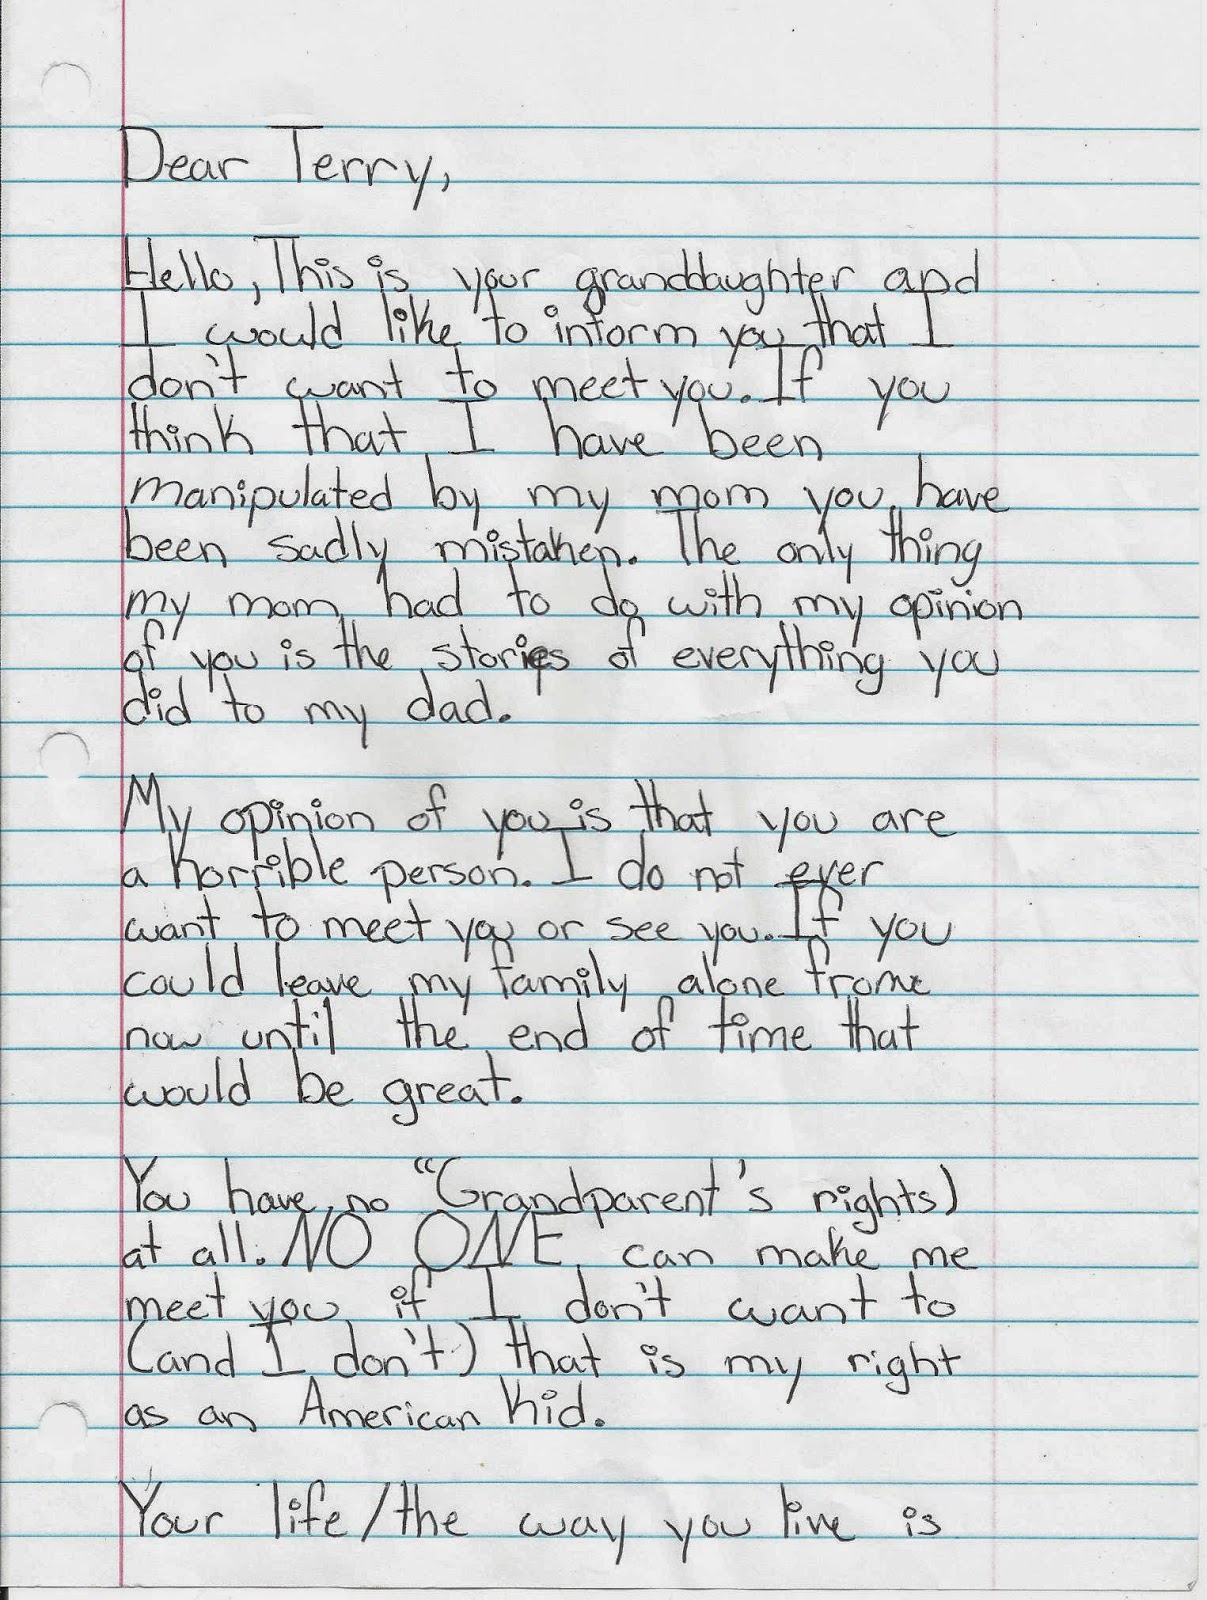 Dear Terry,
Hello, This is your granddaughter and
I would like to inform you that I
don't want to meet you. If you
think that I have been
manipulated by my mom you have
been sadly mistaken. The only thing
my mom had to do with my opinion
of you is the stories of everything you
did to my dad.
My opinion of you is that you are
a horrible person. I do not ever
want to meet you or see you. If you
could leave my family alone frome
now until the end of time that
would be great.
You have no "Grandparent's rights)
at all. NO ONE can make me
meet you if I don't want to
(and I don't) that is my right
as an American Kid.
Your life/the way you live is